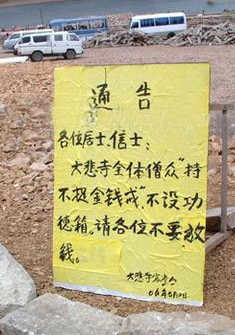 通告
各位居士、信士：
大悲寺全体僧众“持
不捉金钱戒”不设功
德箱。请各位不要放
钱。
大悲寺客堂